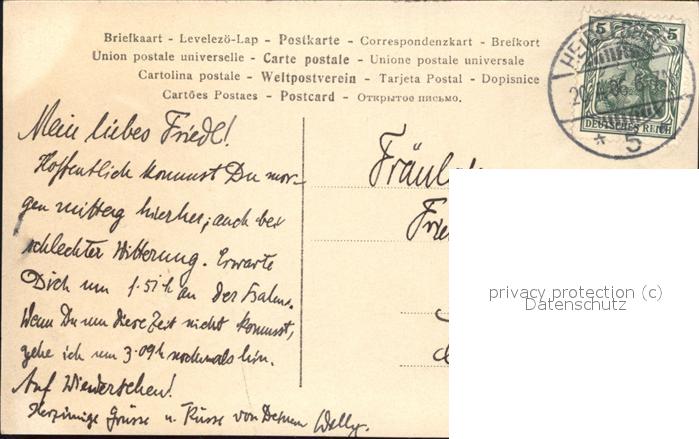 Briefkaart - Levelező-Lap - Postkarte - Correspondenzkart - Brefkort
Union postale universelle - Carte postale - Unione postale universale
Cartolina postale - Weltpostverein - Tarjeta Postal - Dopisnice
Cartões Postaes - Postcard - Открытое письмо.
5 5
DEUTSCHES REICH
* 5
Mein liebes Friedl!
Hoffentlich kommst Du mor-
gen mittag hierher, auch bei
schlechter Witterung. Erwarte
Dich um 1.51h an der Bahn.
Wenn Du um diese Zeit nicht kommst,
gehe ich um 3.09h nochmals hin.
Auf Wiedersehen!
Herzinnige Grüsse u. Küsse von Deinem Willy.
privacy protection (c)
Datenschutz